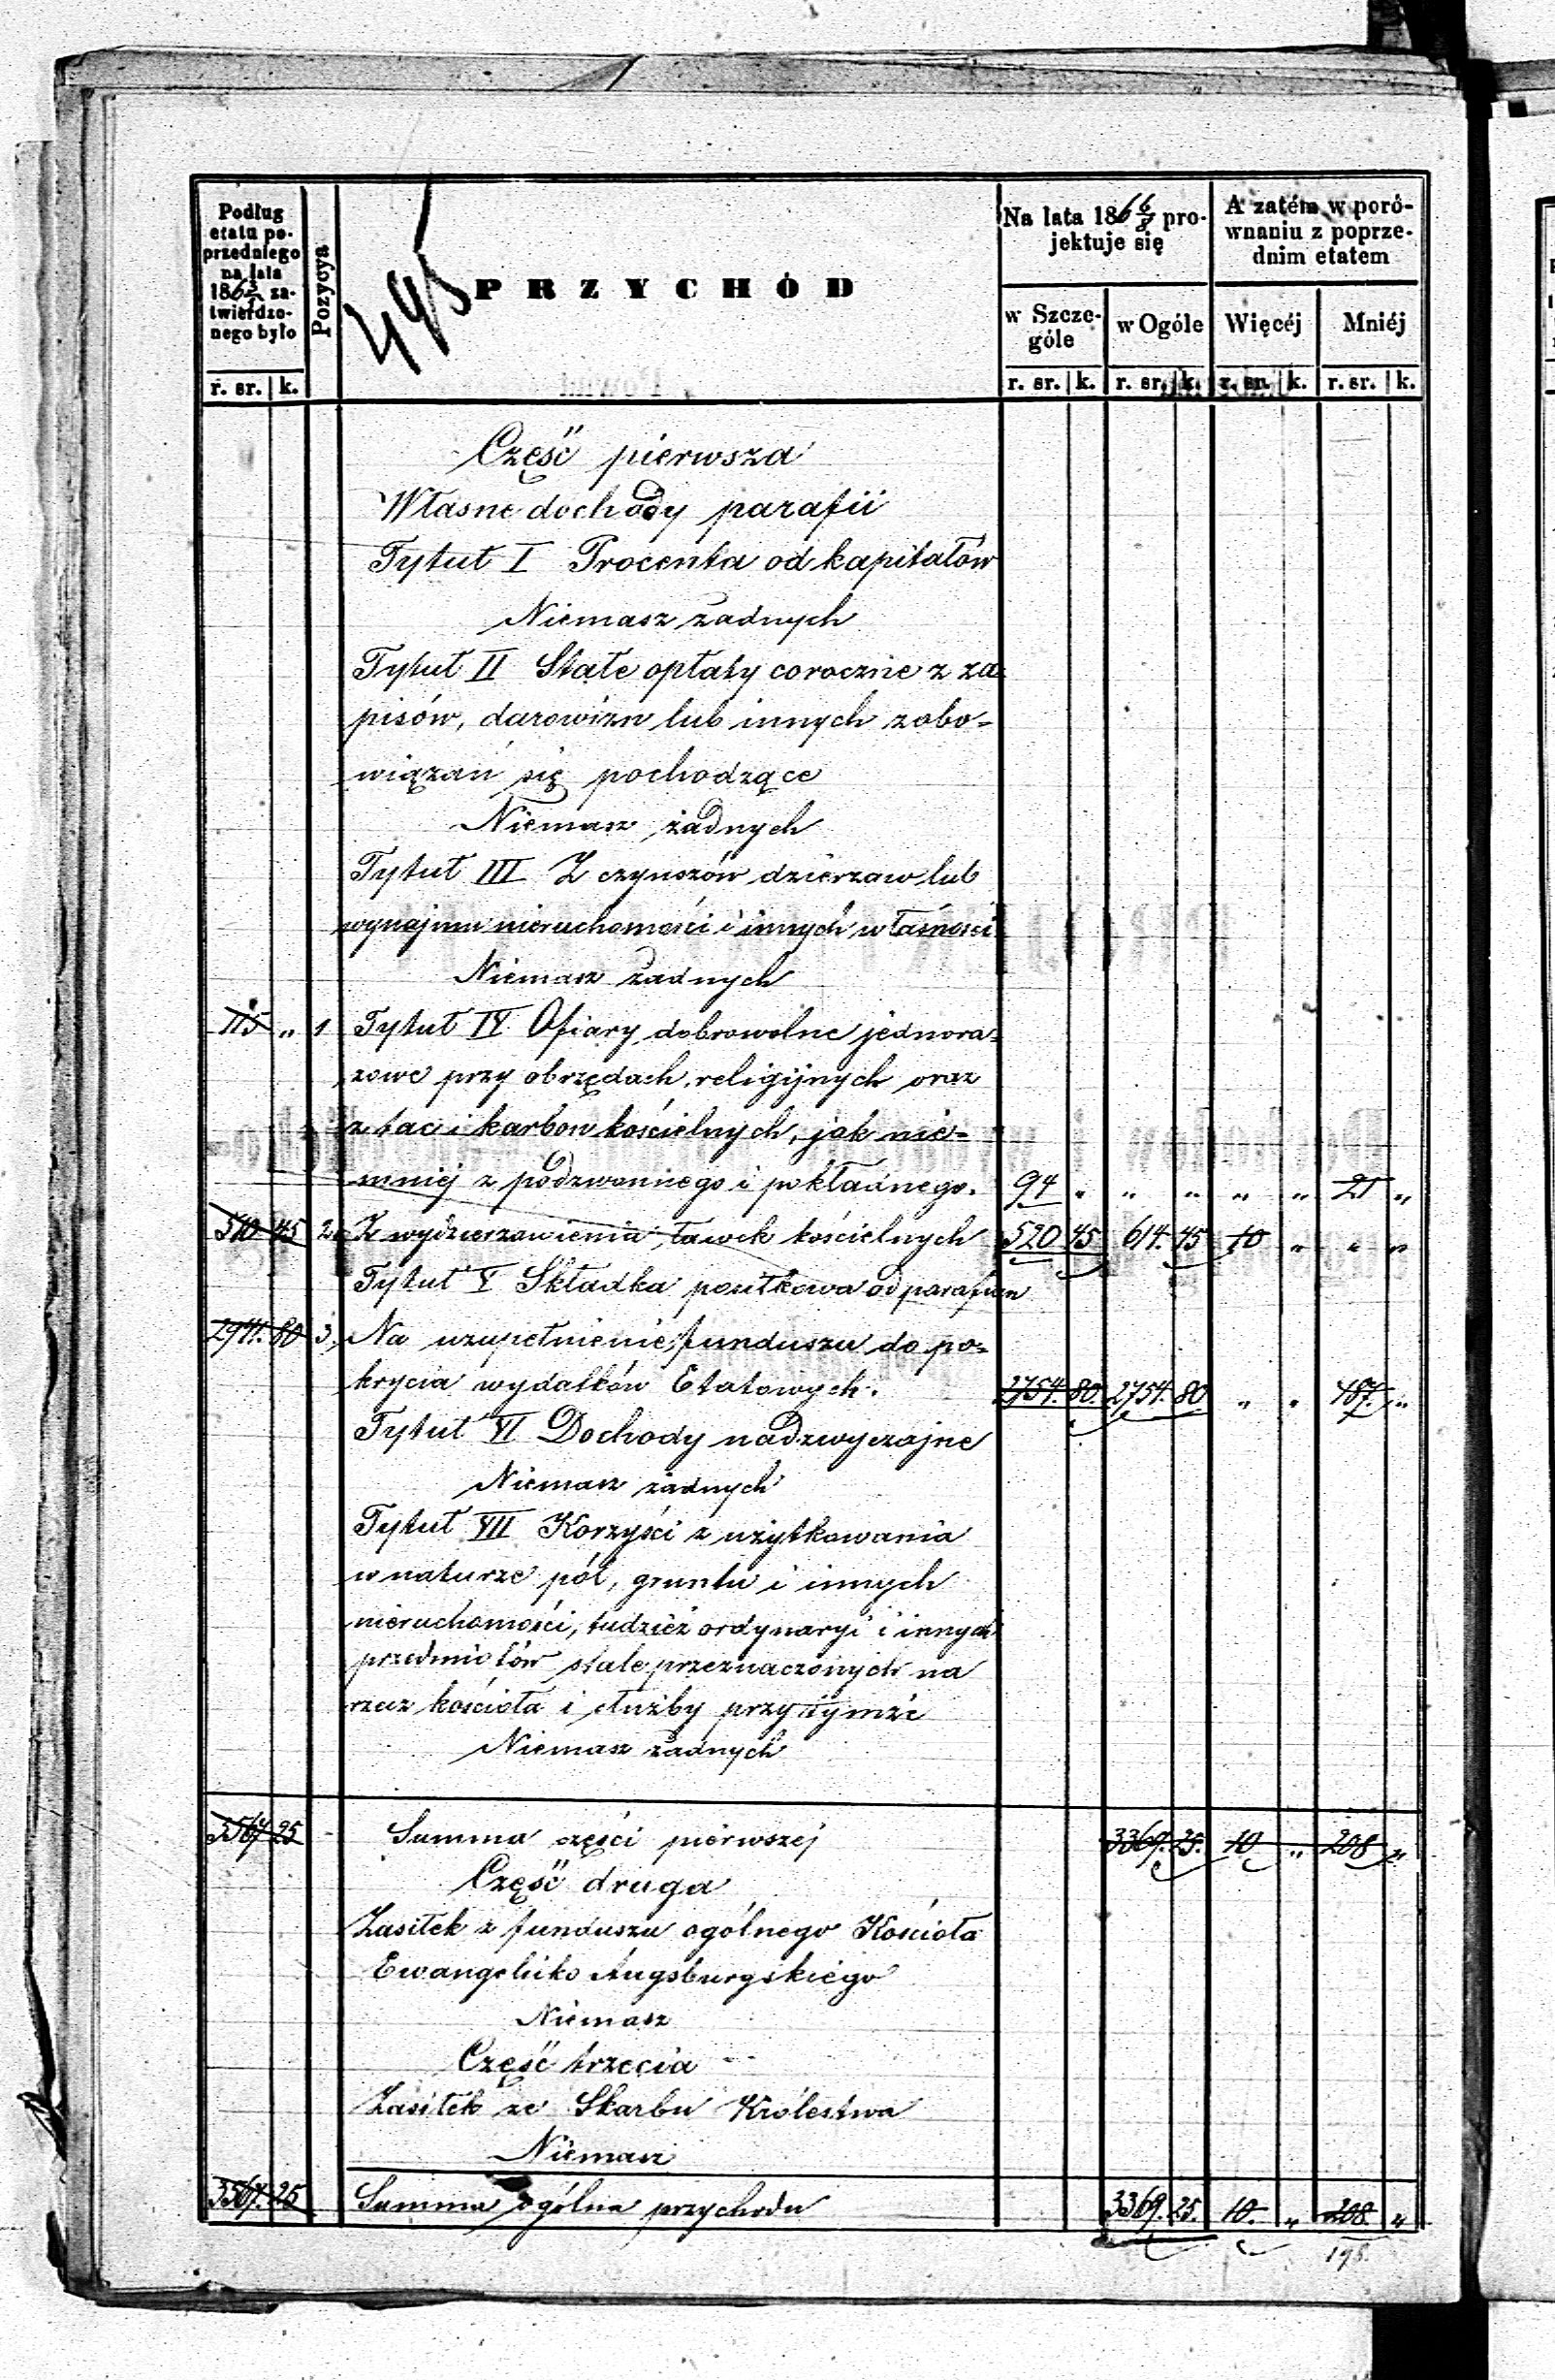 Podług
etatu po-
przedniego
na lata
186 3/5 za-
twierdzo-
nego było
r. sr. k.
Pozycya
495
PRZYCHÓD
Na lata 186 6/8 pro-
jektuje się
w Szcze-
góle
r. sr. k.
w Ogóle
r. sr. k.
A zatém w poró-
wnaniu z poprze-
dnim etatem
Więcéj
r. sr. k.
Mniéj
r. sr. k.
Część pierwsza
Własne dochody parafii
Tytuł I Procenta od kapitałów
Niemasz żadnych
Tytuł II Stałe opłaty coroczne z za-
pisów, darowizn lub innych zobo-
wiązań się pochodzące
Niemasz żadnych
Tytuł III Z czynszów dzierzaw lub
wynajmu nieruchomości i innych własności
Niemasz żadnych
115 „ 1 Tytuł IV Ofiary dobrowolne jednora-
zowe przy obrzędach religijnych oraz
z tac i karbon kościelnych, jak nie-
mniej z podzwonnego i pokładnego. 94 „ „ „ „ „ 21 „
510 45 2 Z wydzierzawienia ławek kościelnych 520 45 614. 45 10 „ „ „
Tytuł V Składka posiłkowa od parafian
2941. 80 3. Na uzupełnienie funduszu do po-
krycia wydatków Etatowych. 2754. 80. 2754. 80 „ „ 187. „
Tytuł VI Dochody nadzwyczajne
Niemasz żadnych
Tytuł VII Korzyści z użytkowania
w naturze pól, gruntu i innych
nieruchomości, tudzież ordynaryi i innych
przedmiotów stale przeznaczonych na
rzecz kościoła i służby przy tymże
Niemasz żadnych
3567 25 Summa części pierwszej 3369. 25. 10 „ 208 „
Część druga
Zasiłek z funduszu ogólnego Kościoła
Ewangelicko Augsburgskiego
Niemasz
Część trzecia
Zasiłek ze Skarbu Królestwa
Niemasz
3567. 25 Summa ogólna przychodu 3369. 25. 10. „ 208. „
198.